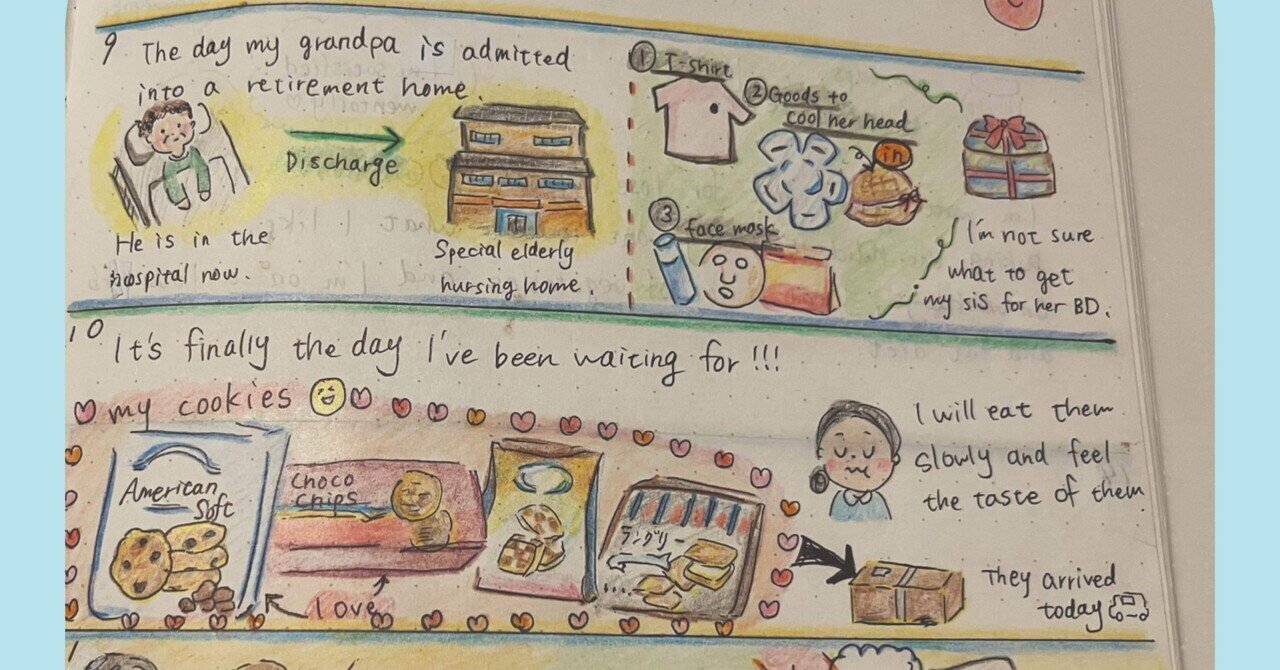 9 The day my grandpa is admitted
into a retirement home.
Discharge
He is in the
hospital now.
Special elderly
nursing home.
① T-shirt
② Goods to
cool her head
in
③ face mask
I'm not sure
what to get
my sis for her BD.
10 It's finally the day I've been waiting for!!!
my cookies
American
Soft
CHOCO
CHIPS
ラングリー
Love
I will eat them
slowly and feel
the taste of them
They arrived
today